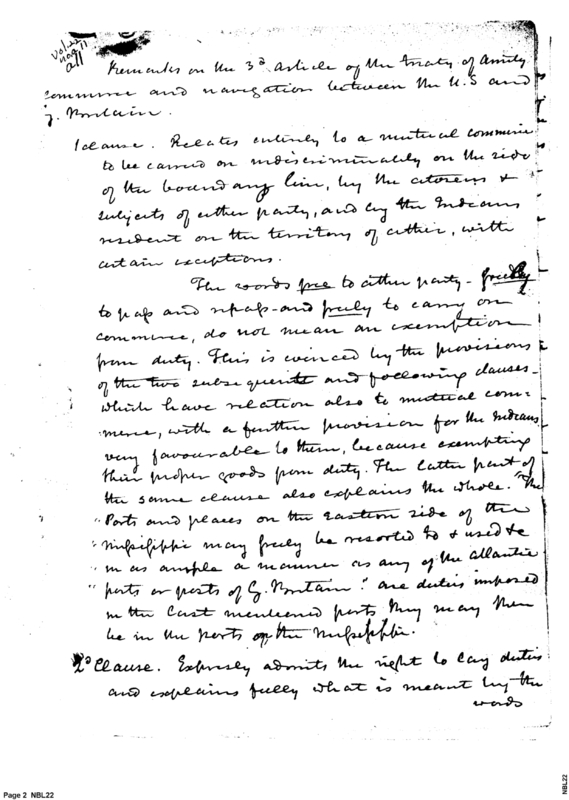 Vol. 22
pag. 11
all
Remarks on the 3d. Article of the treaty of Amity
commerce and navigation between the U.S and
G. Britain.
1 clause. Relates entirely to a mutual commerce
to be carried on indiscriminately on the side
of the boundary line, by the citizens &
subjects of either party, and by the Indians
resident on the territory of either, with
certain exceptions.
The words free to either party - freely
to pass and repass - and freely to carry on
commerce, do not mean an exemption
from duty. This is evinced by the provisions
of the two subsequent and following clauses -
which have relation also to mutual com-
merce, with a further provision for the Indians
very favourable to them, because exempting
their proper goods from duty. The latter part of
the same clause also explains the whole. "The
"Ports and places on the Eastern side of the
"Mississippi may freely be resorted to & used &c
in as ample a manner as any of the Atlantic
"ports or ports of G. Britain." are duties imposed
in the last mentioned ports they may then
be in the ports of the Mississippi.
2d Clause. Expressly admits the right to lay duties
and explains fully what is meant by the
words
Page 2 NBL22
NBL22